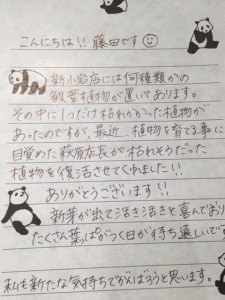 こんにちは!! 藤田です
新小岩店には何種類かの
観葉植物が置いてあります。
その中に1つだけ枯れかかった植物が
あったのですが、最近、植物を育てる事に
目覚めた萩原店長が枯れそうだった
植物を復活させてくれました!!
ありがとうございます!!
新芽が出て活き活きと喜んでおり
たくさん葉っぱがつく日が待ち遠しいです
私も新たな気持ちでがんばろうと思います。